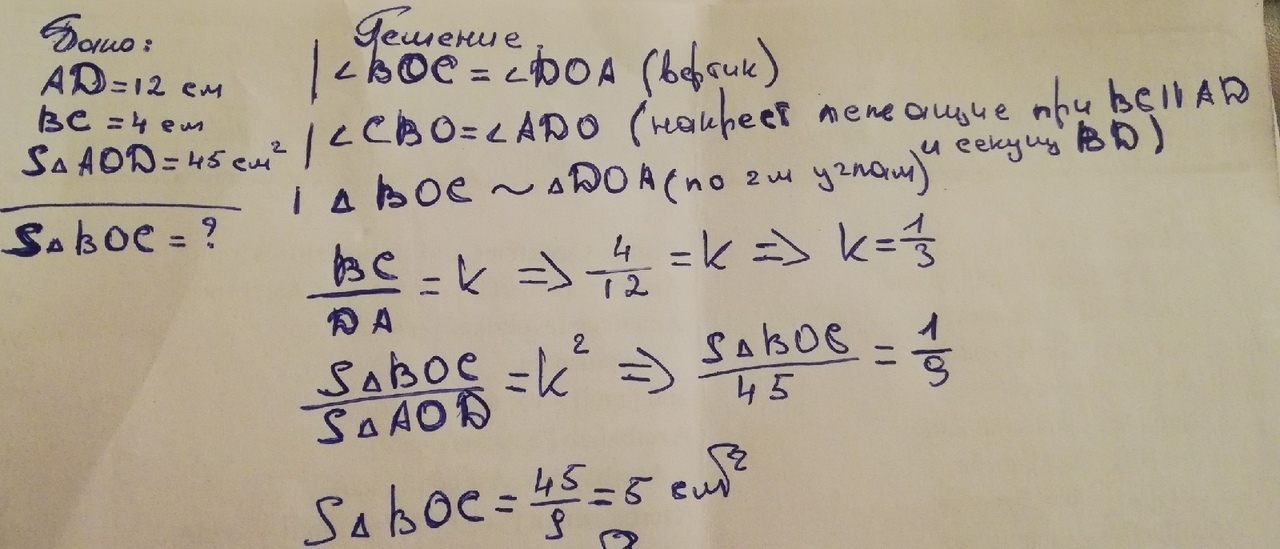 Дано:
AD=12 см
BC=4 см
S△AOD=45 см²
S△BOC=?
Решение.
∠BOC=∠DOA (вертик)
∠CBO=∠ADO (накрест лежащие при BC||AD
и секущ BD)
△BOC ~ △DOA (по 2м углам)
BC/DA = k => 4/12 = k => k=1/3
S△BOC/S△AOD = k² => S△BOC/45 = 1/9
S△BOC = 45/9 = 5 см²